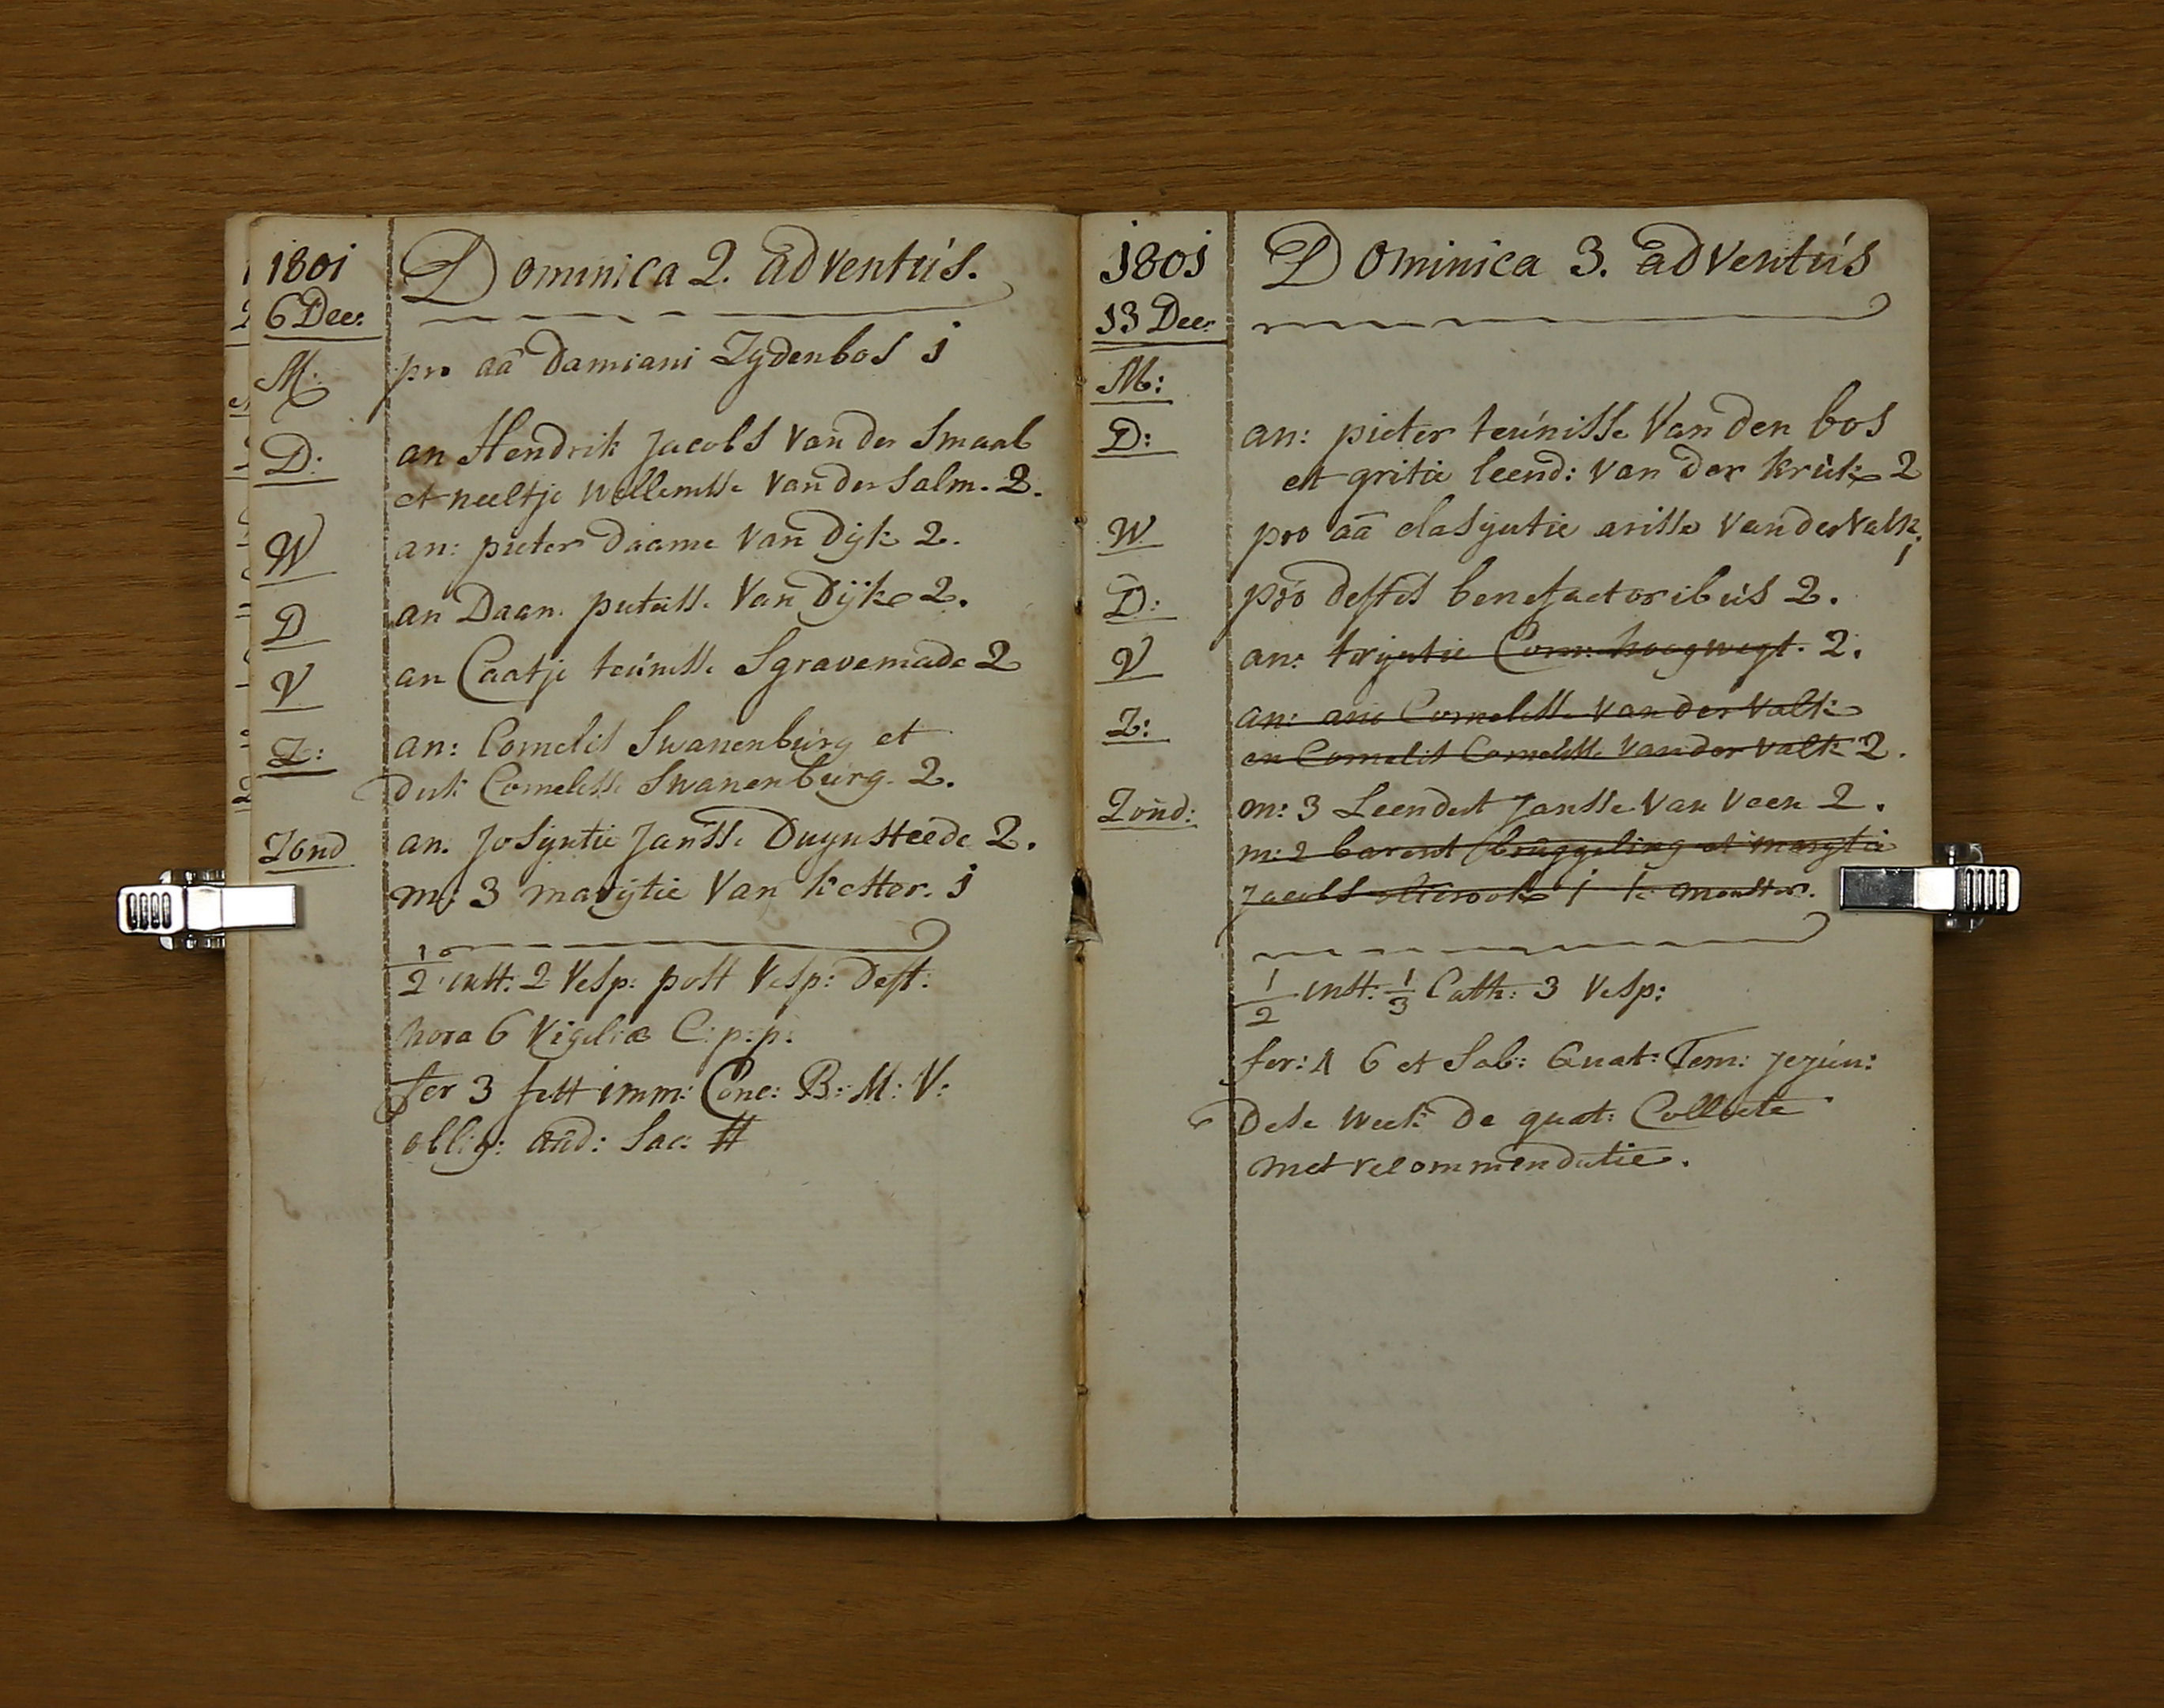 1801 Dominica 2. adventús.
6 Dec:
M: pro aā Damiani Zydenbos j
D: an Hendrik Jacobs van der Smaal
et neeltje Willemsse van der Salm. 2.
W an: pieter Daame van Dijk 2.
D an Daan: pietersse van Dijk 2.
V an Caatje teúnisse Sgravemade 2
Z: an: Cornelis Swanenbúrg et
Dirk Cornelisse Swanenbúrg. 2.
Zond an. Josÿntie Jansse Duynsteede 2.
m: 3 marÿtie van kester. j
1/2 inst: 2 Vesp: post Vesp: Deft:
hora 6 Vigiliæ C: p: p:
fer 3 fest imm: Conc: B: M: V:
oblig: aúd: Sac: #
1801 Dominica 3. adventús
13 Dec:
M:
D: an: pieter teúnisse van den bos
et gritie leend: van der krúk 2
W pro aā clasÿntie arisse van der Valk. j
D: pro deftis benefactoribús 2.
V an: trijntie Corn: hoogwegt. 2.
Z: an: arie Cornelisse van der Valk
en Cornelis Cornelisse van der Valk 2.
Zond: m: 3 Leendert Jansse van Veen 2.
m: 2 barent brúggeling et marÿtie
Jacobs j k: monster.
1/2 inst: 1/3 Cath: 3 Vesp:
fer: 4 6 et Sab: Quat: Tem: jejún:
Dese week de quat: Collecte
met recommendatie.